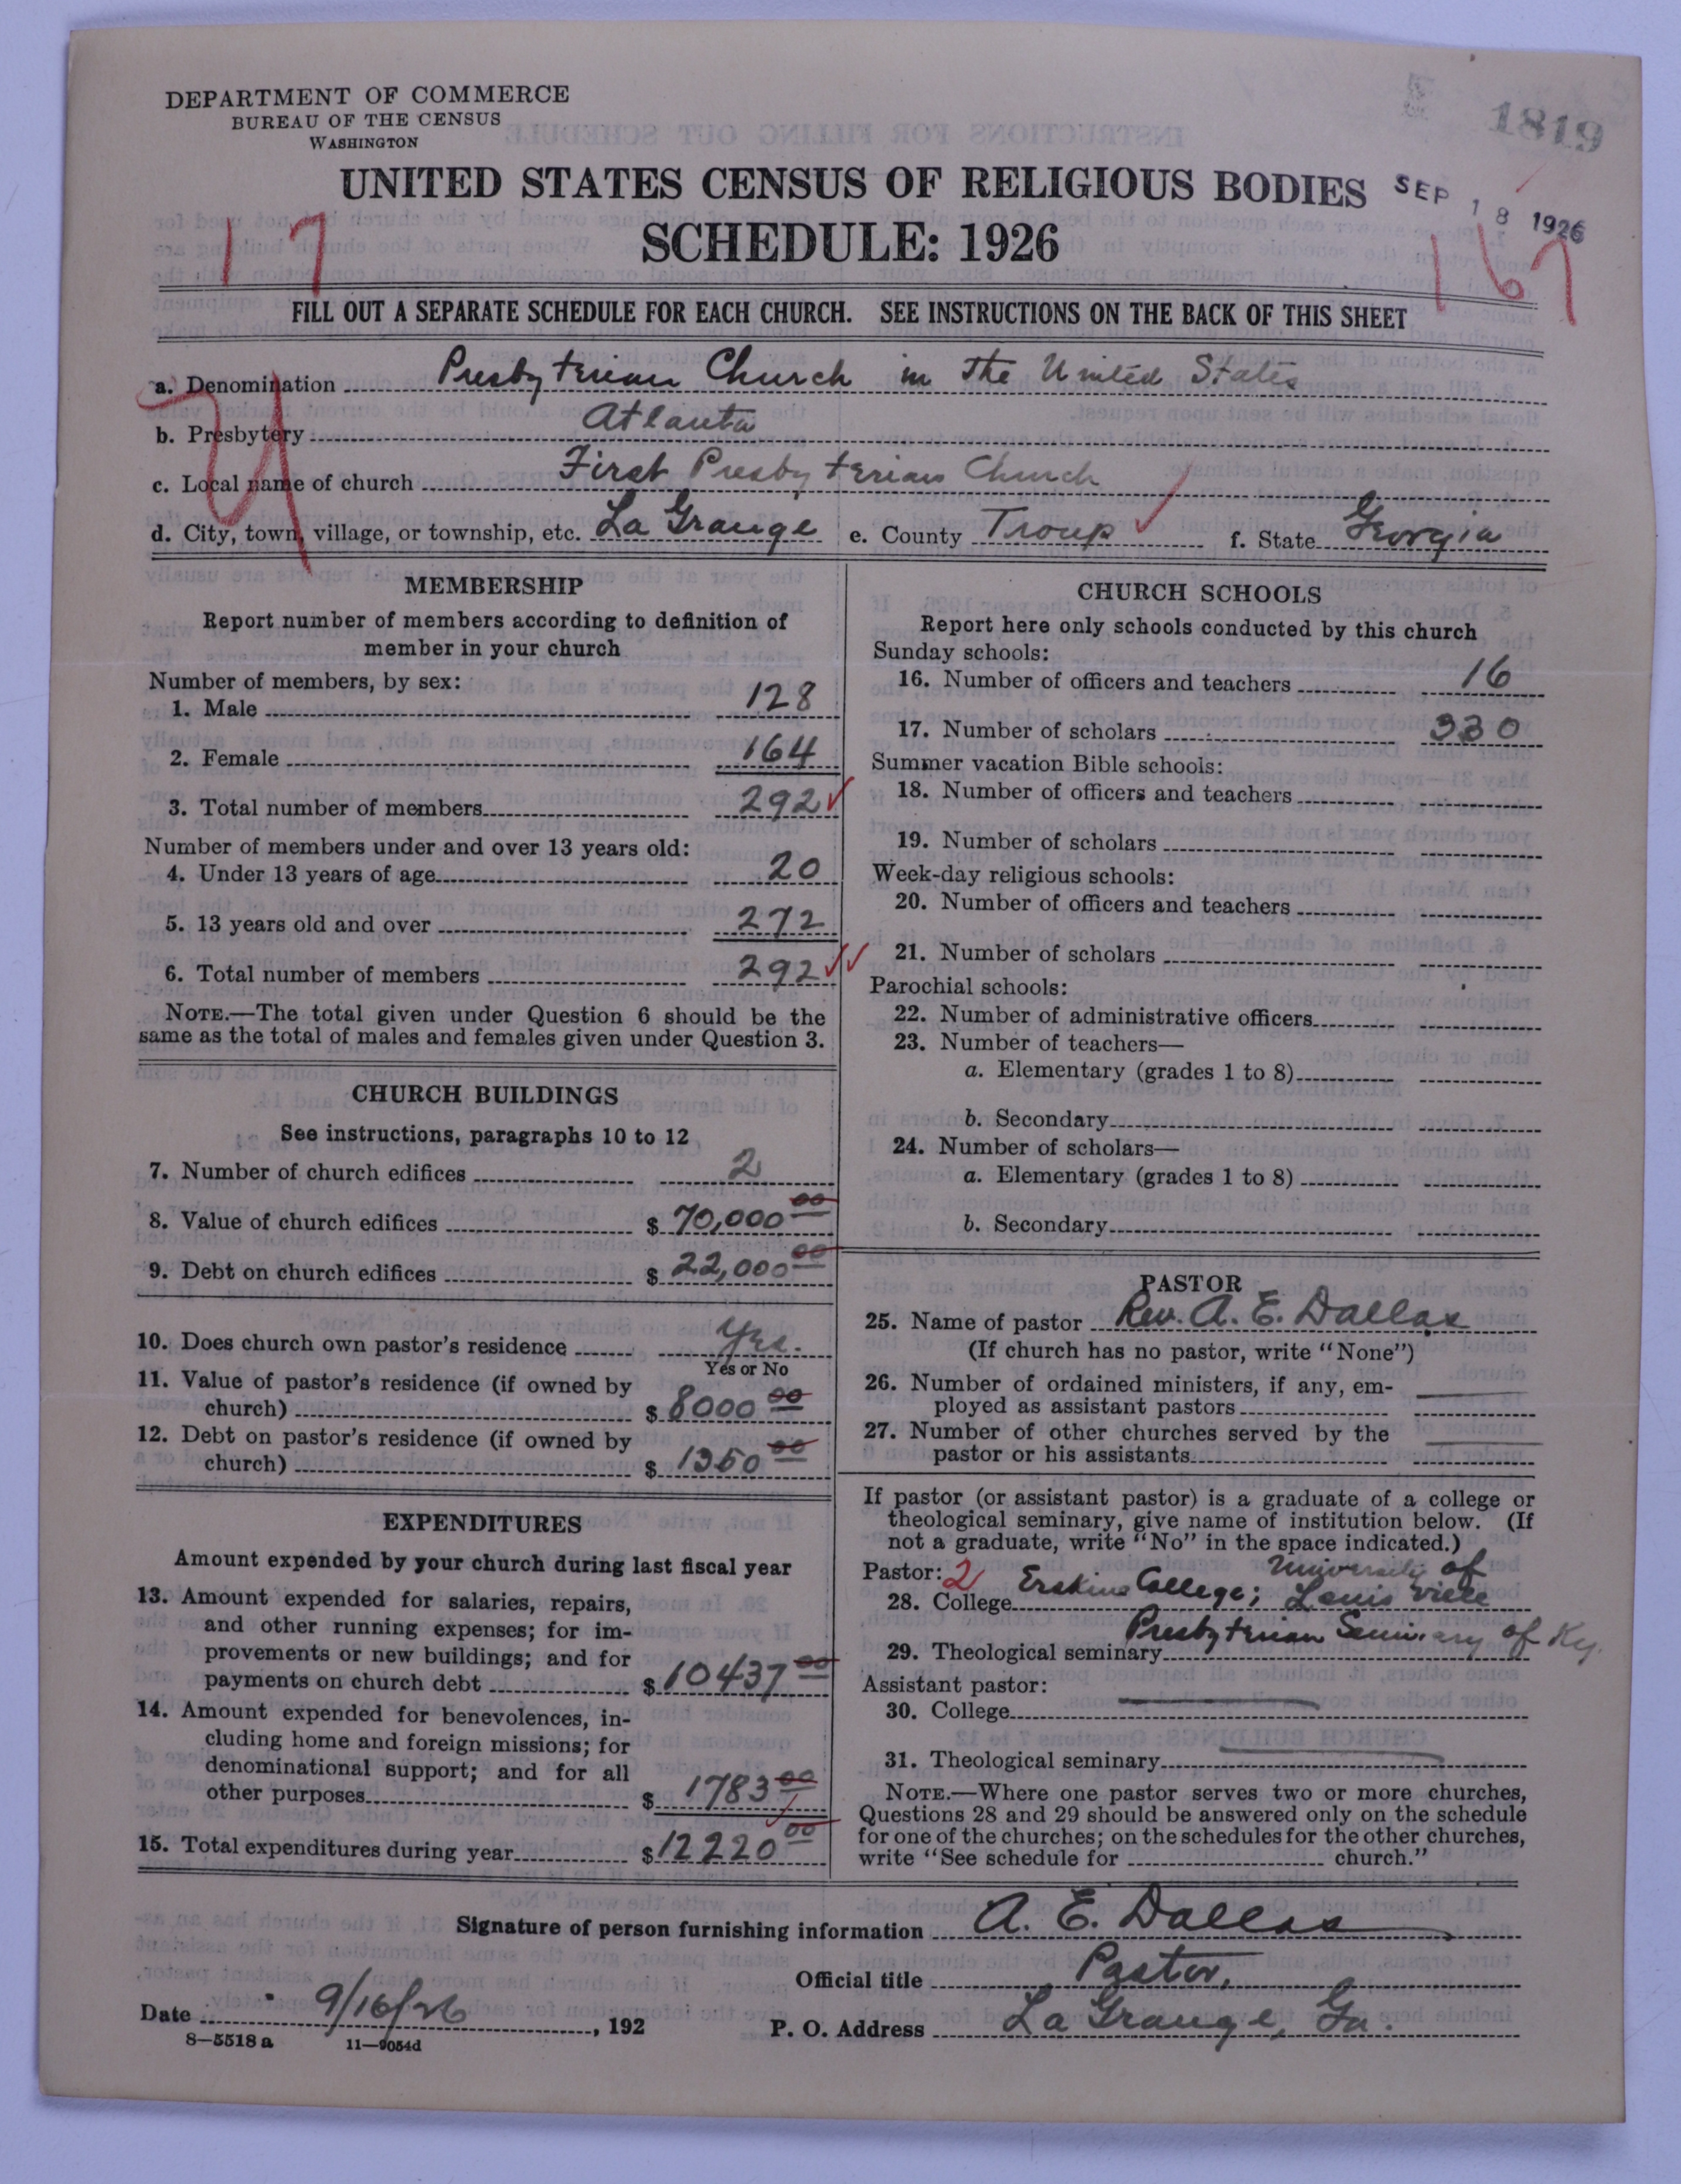 DEPARTMENT OF COMMERCE
BUREAU OF THE CENSUS
WASHINGTON
1819
UNITED STATES CENSUS OF RELIGIOUS BODIES
SEP 18 1926
SCHEDULE: 1926
17
167
FILL OUT A SEPARATE SCHEDULE FOR EACH CHURCH. SEE INSTRUCTIONS ON THE BACK OF THIS SHEET
a. Denomination Presbyterian Church in The United States
b. Presbytery Atlanta
c. Local name of church First Presbyterian Church
d. City, town, village, or township, etc. La Grange e. County Troup f. State Georgia
MEMBERSHIP
Report number of members according to definition of
member in your church
Number of members, by sex:
1. Male 128
2. Female 164
3. Total number of members 292
Number of members under and over 13 years old:
4. Under 13 years of age 20
5. 13 years old and over 272
6. Total number of members 292
NOTE.—The total given under Question 6 should be the
same as the total of males and females given under Question 3.
CHURCH BUILDINGS
See instructions, paragraphs 10 to 12
7. Number of church edifices 2
8. Value of church edifices $ 70,000 00
9. Debt on church edifices $ 22,000 00
10. Does church own pastor's residence Yes.
Yes or No
11. Value of pastor's residence (if owned by
church) $ 8000 00
12. Debt on pastor's residence (if owned by
church) $ 1350 00
EXPENDITURES
Amount expended by your church during last fiscal year
13. Amount expended for salaries, repairs,
and other running expenses; for im-
provements or new buildings; and for
payments on church debt $ 10437 00
14. Amount expended for benevolences, in-
cluding home and foreign missions; for
denominational support; and for all
other purposes $ 1783 00
15. Total expenditures during year $ 12220 00
CHURCH SCHOOLS
Report here only schools conducted by this church
Sunday schools:
16. Number of officers and teachers 16
17. Number of scholars 330
Summer vacation Bible schools:
18. Number of officers and teachers
19. Number of scholars
Week-day religious schools:
20. Number of officers and teachers
21. Number of scholars
Parochial schools:
22. Number of administrative officers
23. Number of teachers—
a. Elementary (grades 1 to 8)
b. Secondary
24. Number of scholars—
a. Elementary (grades 1 to 8)
b. Secondary
PASTOR
25. Name of pastor Rev. A. E. Dallas
(If church has no pastor, write "None")
26. Number of ordained ministers, if any, em-
ployed as assistant pastors
27. Number of other churches served by the
pastor or his assistants
If pastor (or assistant pastor) is a graduate of a college or
theological seminary, give name of institution below. (If
not a graduate, write "No" in the space indicated.)
Pastor: 2 University of
28. College Erskine College; Louisville
Presbyterian Seminary of Ky.
29. Theological seminary
Assistant pastor:
30. College
31. Theological seminary
NOTE.—Where one pastor serves two or more churches,
Questions 28 and 29 should be answered only on the schedule
for one of the churches; on the schedules for the other churches,
write "See schedule for church."
Signature of person furnishing information A. E. Dallas
Official title Pastor,
Date 9/16/26, 192
P. O. Address La Grange, Ga.
8—5518 a 11—9054d